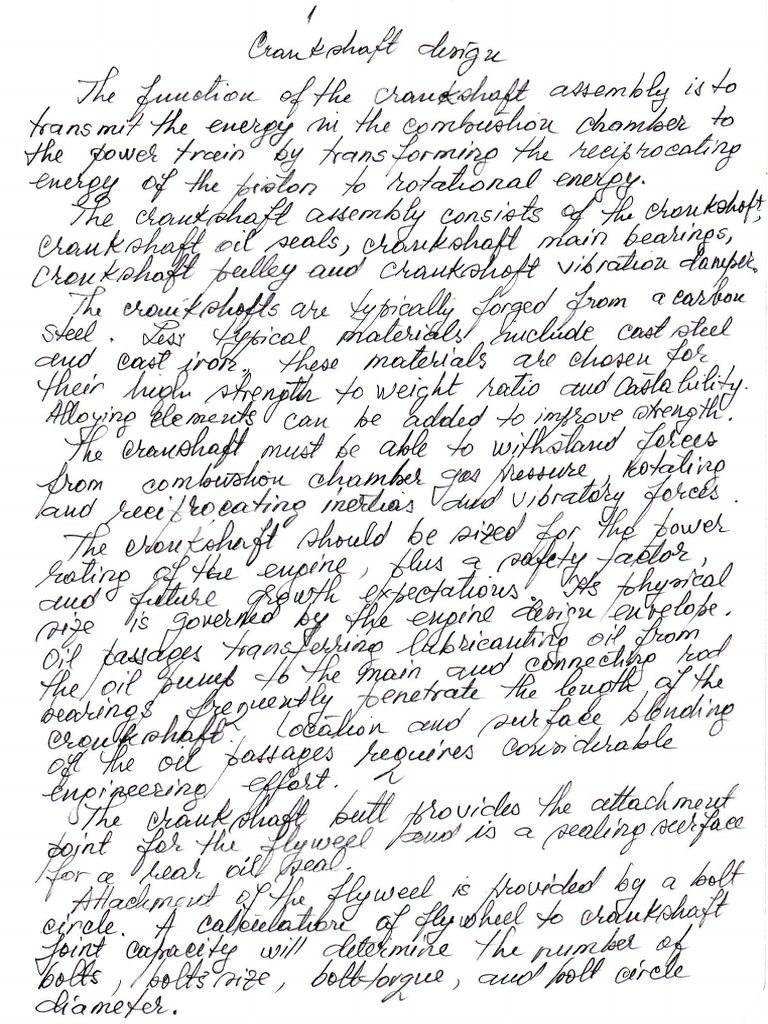 1
Crankshaft design
The function of the crankshaft assembly is to
transmit the energy in the combustion chamber to
the power train by transforming the reciprocating
energy of the piston to rotational energy.
The crankshaft assembly consists of the crankshaft,
crankshaft oil seals, crankshaft main bearings,
crankshaft pulley and crankshaft vibration damper.
The crankshafts are typically forged from a carbon
steel. Less typical materials include cast steel
and cast iron, these materials are chosen for
their high strength to weight ratio and castability.
Alloying elements can be added to improve strength.
The cranshaft must be able to withstand forces
from combustion chamber gas pressure, rotating
and reciprocating inertias and vibratory forces.
The crankshaft should be sized for the power
rating of the engine, plus a safety factor,
and future growth expectations. Its physical
size is governed by the engine design envelope.
Oil passages transferring lubricanting oil from
the oil pump to the main and connecting rod
bearings frequently penetrate the length of the
crankshaft. Location and surface blending
of the oil passages requires considerable
engineering effort.
The crankshaft butt provides the attachment
point for the flyweel and is a sealing surface
for a rear oil seal.
Attachment of the flyweel is provided by a bolt
circle. A calculation of flywheel to crankshaft
joint capacity will determine the number of
bolts, bolts size, bolt torque, and bolt circle
diameter.